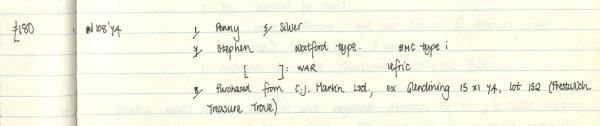 £180 N108'74 1, Penny 3, Silver
7, Stephen Watford type. BMC type i
[ ]: WAR Ulfric
8, Purchased from C.J. Martin Ltd., ex Glendining 15 XI 74, lot 152 (Prestwich
Treasure Trove)